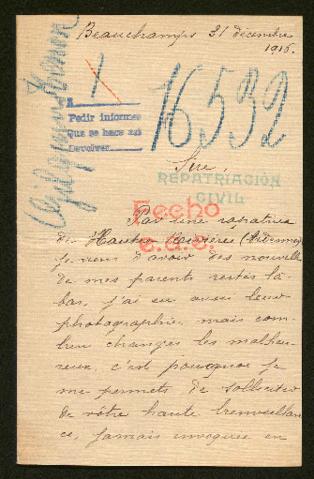 Beauchamps 31 décembre
1916.
1
16532
Pedir informes
Que se hace así
Devolver
Sire,
REPATRIACIÓN
CIVIL
Fecho
Par une rapatriée
de Hautes Rivières (Ardennes)
je viens d'avoir des nouvelles
de mes parents restés là-
bas, j'ai eu aussi leur
photographie, mais com-
bien changés les malheu-
reux, c'est pourquoi je
me permets de solliciter
de vôtre haute bienveillan
ce, jamais invoquée en